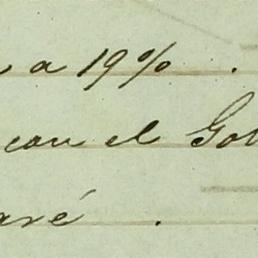 a 19%.
con el Go
aré.